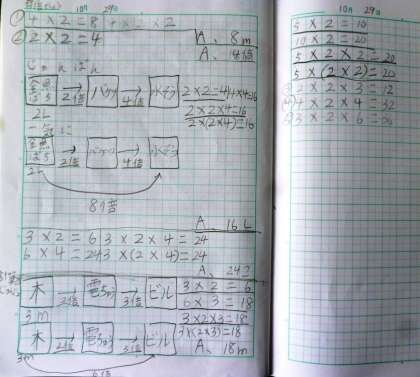 10月 29日
① 4 × 2 = 8 4 × 2 × 2
② 2 × 2 = 4
A、8m
A、4倍
じゅんばん
金魚ばち → 2倍 バケツ → 4倍 水そう
2L
2 × 2 = 4 4 × 4 = 16
2 × 2 × 4 = 16
2 × (2 × 4) = 16
一気に
金魚ばち → 2倍 → 4倍 水そう
2L
8倍
A、16L
3 × 2 = 6 3 × 2 × 4 = 24
6 × 4 = 24 3 × (2 × 4) = 24
A、24
木 → 2倍 電ちゅう → 3倍 ビル
3m
3 × 2 = 6
6 × 3 = 18
3 × 2 × 3 = 18
3 × (2 × 3) = 18
木 → 2倍 電ちゅう → 3倍 ビル
3m
6倍
A、18m
10月 29日
5 × 2 = 10
10 × 2 = 20
5 × 2 × 2 = 20
5 × (2 × 2) = 20
2 × 2 × 3 = 12
4 × 2 × 4 = 32
3 × 2 × 6 =